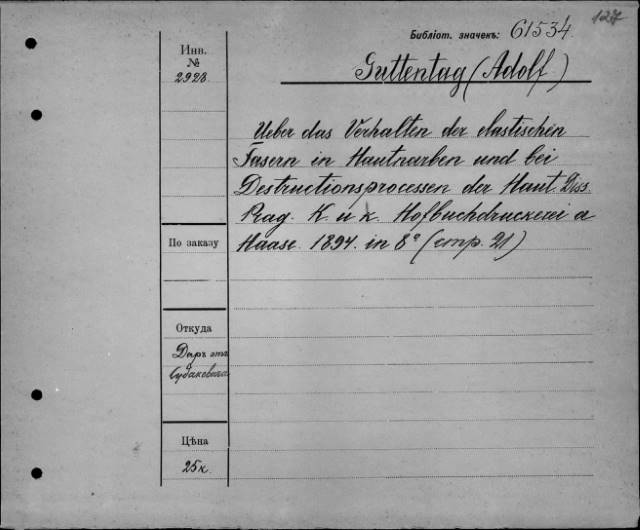 127
Библіот. значекъ: 61534.
Guttentag (Adolf)
Инв.
№
2928
Ueber das Verhalten der elastischen
Fasern in Hautnarben und bei
Destructionsprocessen der Haut. Diss.
Prag. K. u. k. Hofbuchdruckerei a
Haase. 1894. in 8° (стр. 21)
По заказу
Откуда
Даръ отъ
Цѣна
25 к.